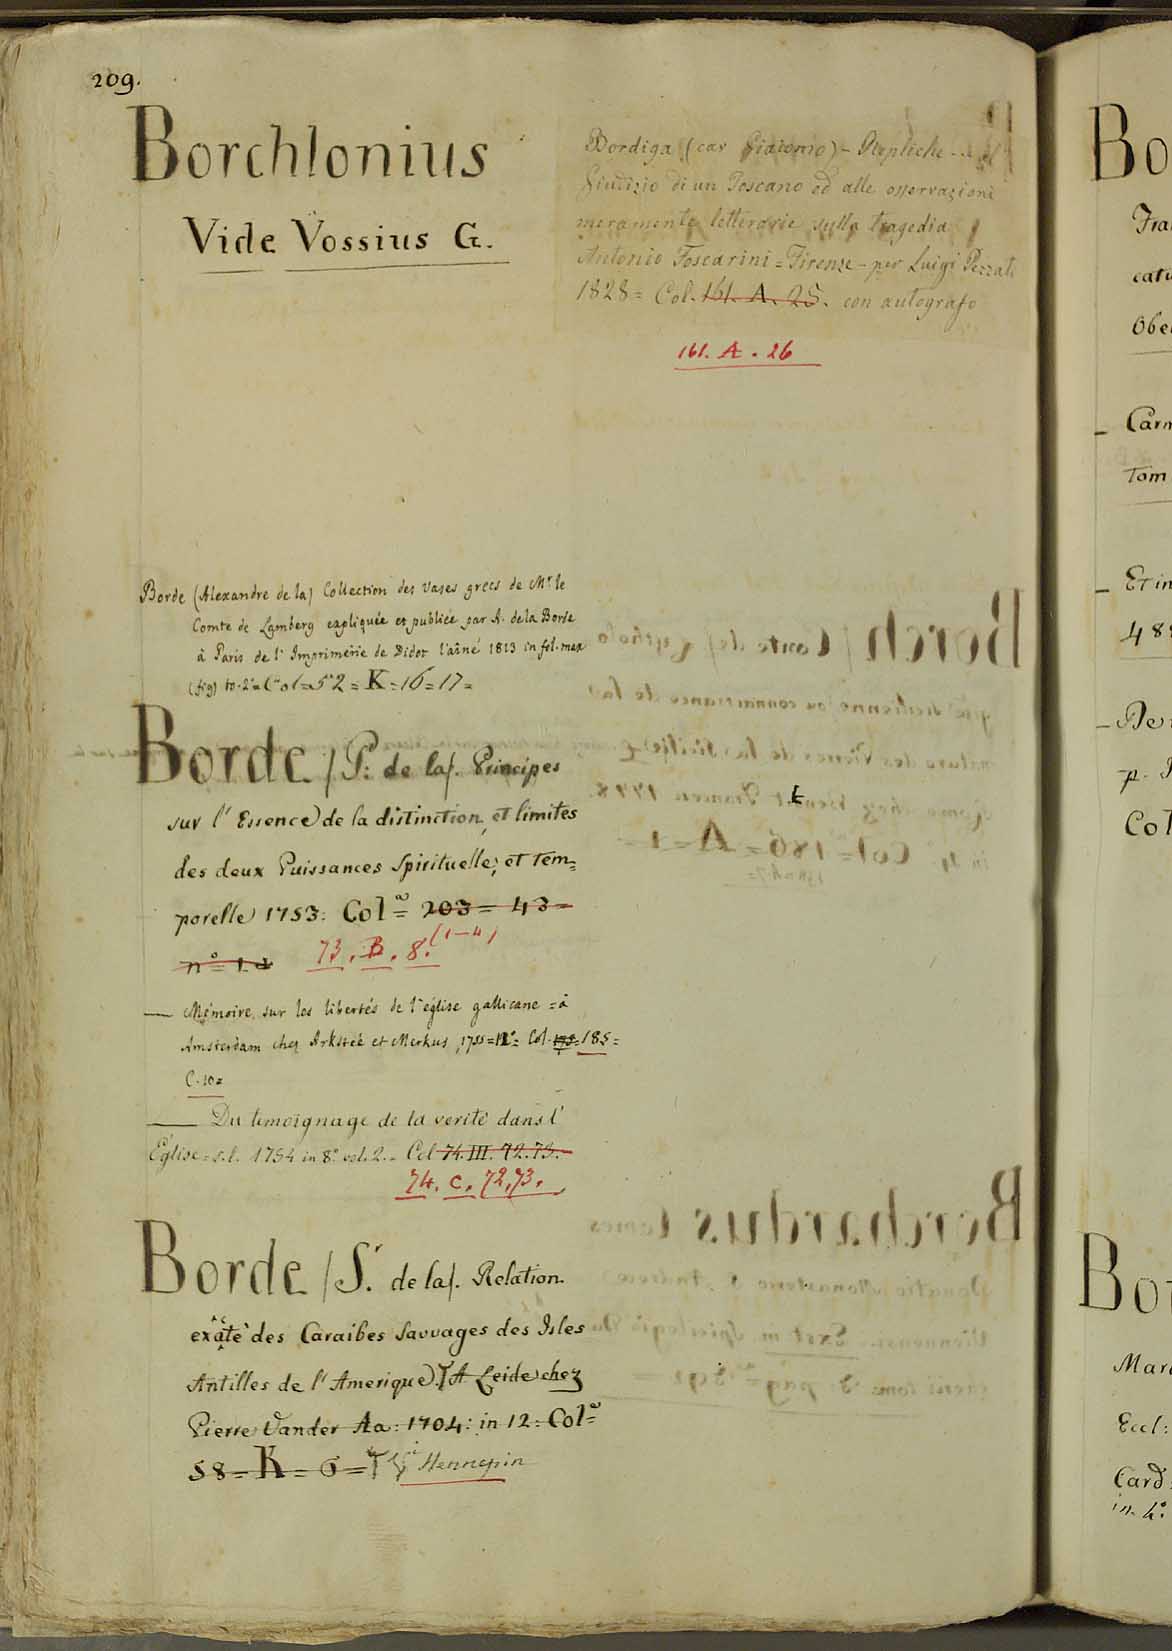 209.
Borchlonius
Vide Vossius G.
Borde (Alexandre de la) Collection des vases grecs de Mr. le
Comte de Lamberg expliquée et publiée par A. de la Borde
à Paris de l'Imprimerie de Didot l'aîné 1813 in fol. max
(fig) to. 2° = Col = 52 = K = 16 = 17 =
Borde / P: de la/. Principes
sur l'Essence de la distinction, et limites
des deux Puissances Spirituelle; et tem=
porelle 1753: Col.e = 203 = 43 =
n° = 1.
73. B. 8. (1-4)
— Mémoire sur les libertés de l'église gallicane = à
Amsterdam chez Arkstée et Merkus, 1755 = 12° = Col. 185 =
C. 10 =
— Du temoignage de la verité dans l'
Église = s.l. 1754 in 8° vol. 2. = Col 74. III. 72. 73.
74. C. 72, 73.
Borde / S.r de la/. Relation
exacte des Caraibes Sauvages des Isles
Antilles de l'Amerique. A Leide chez
Pierre Vander Aa: 1704: in 12: Col.e =
58 = K = 6 = Vi Hennepin
Bordiga (cav Giacomo) - Repliche - al
Giudizio di un Toscano ed alle osservazioni
meramente letterarie sulla tragedia
Antonio Foscarini = Firenze - per Luigi Pezzati
1828 = Col. 161. A. 25. con autografo
161. A. 26
Bo
Fra
cati
Obe
— Carm
Tom
— Et in
48
— De
p.
Col
Bor
Mar
Eccl:
Card:
in 4°